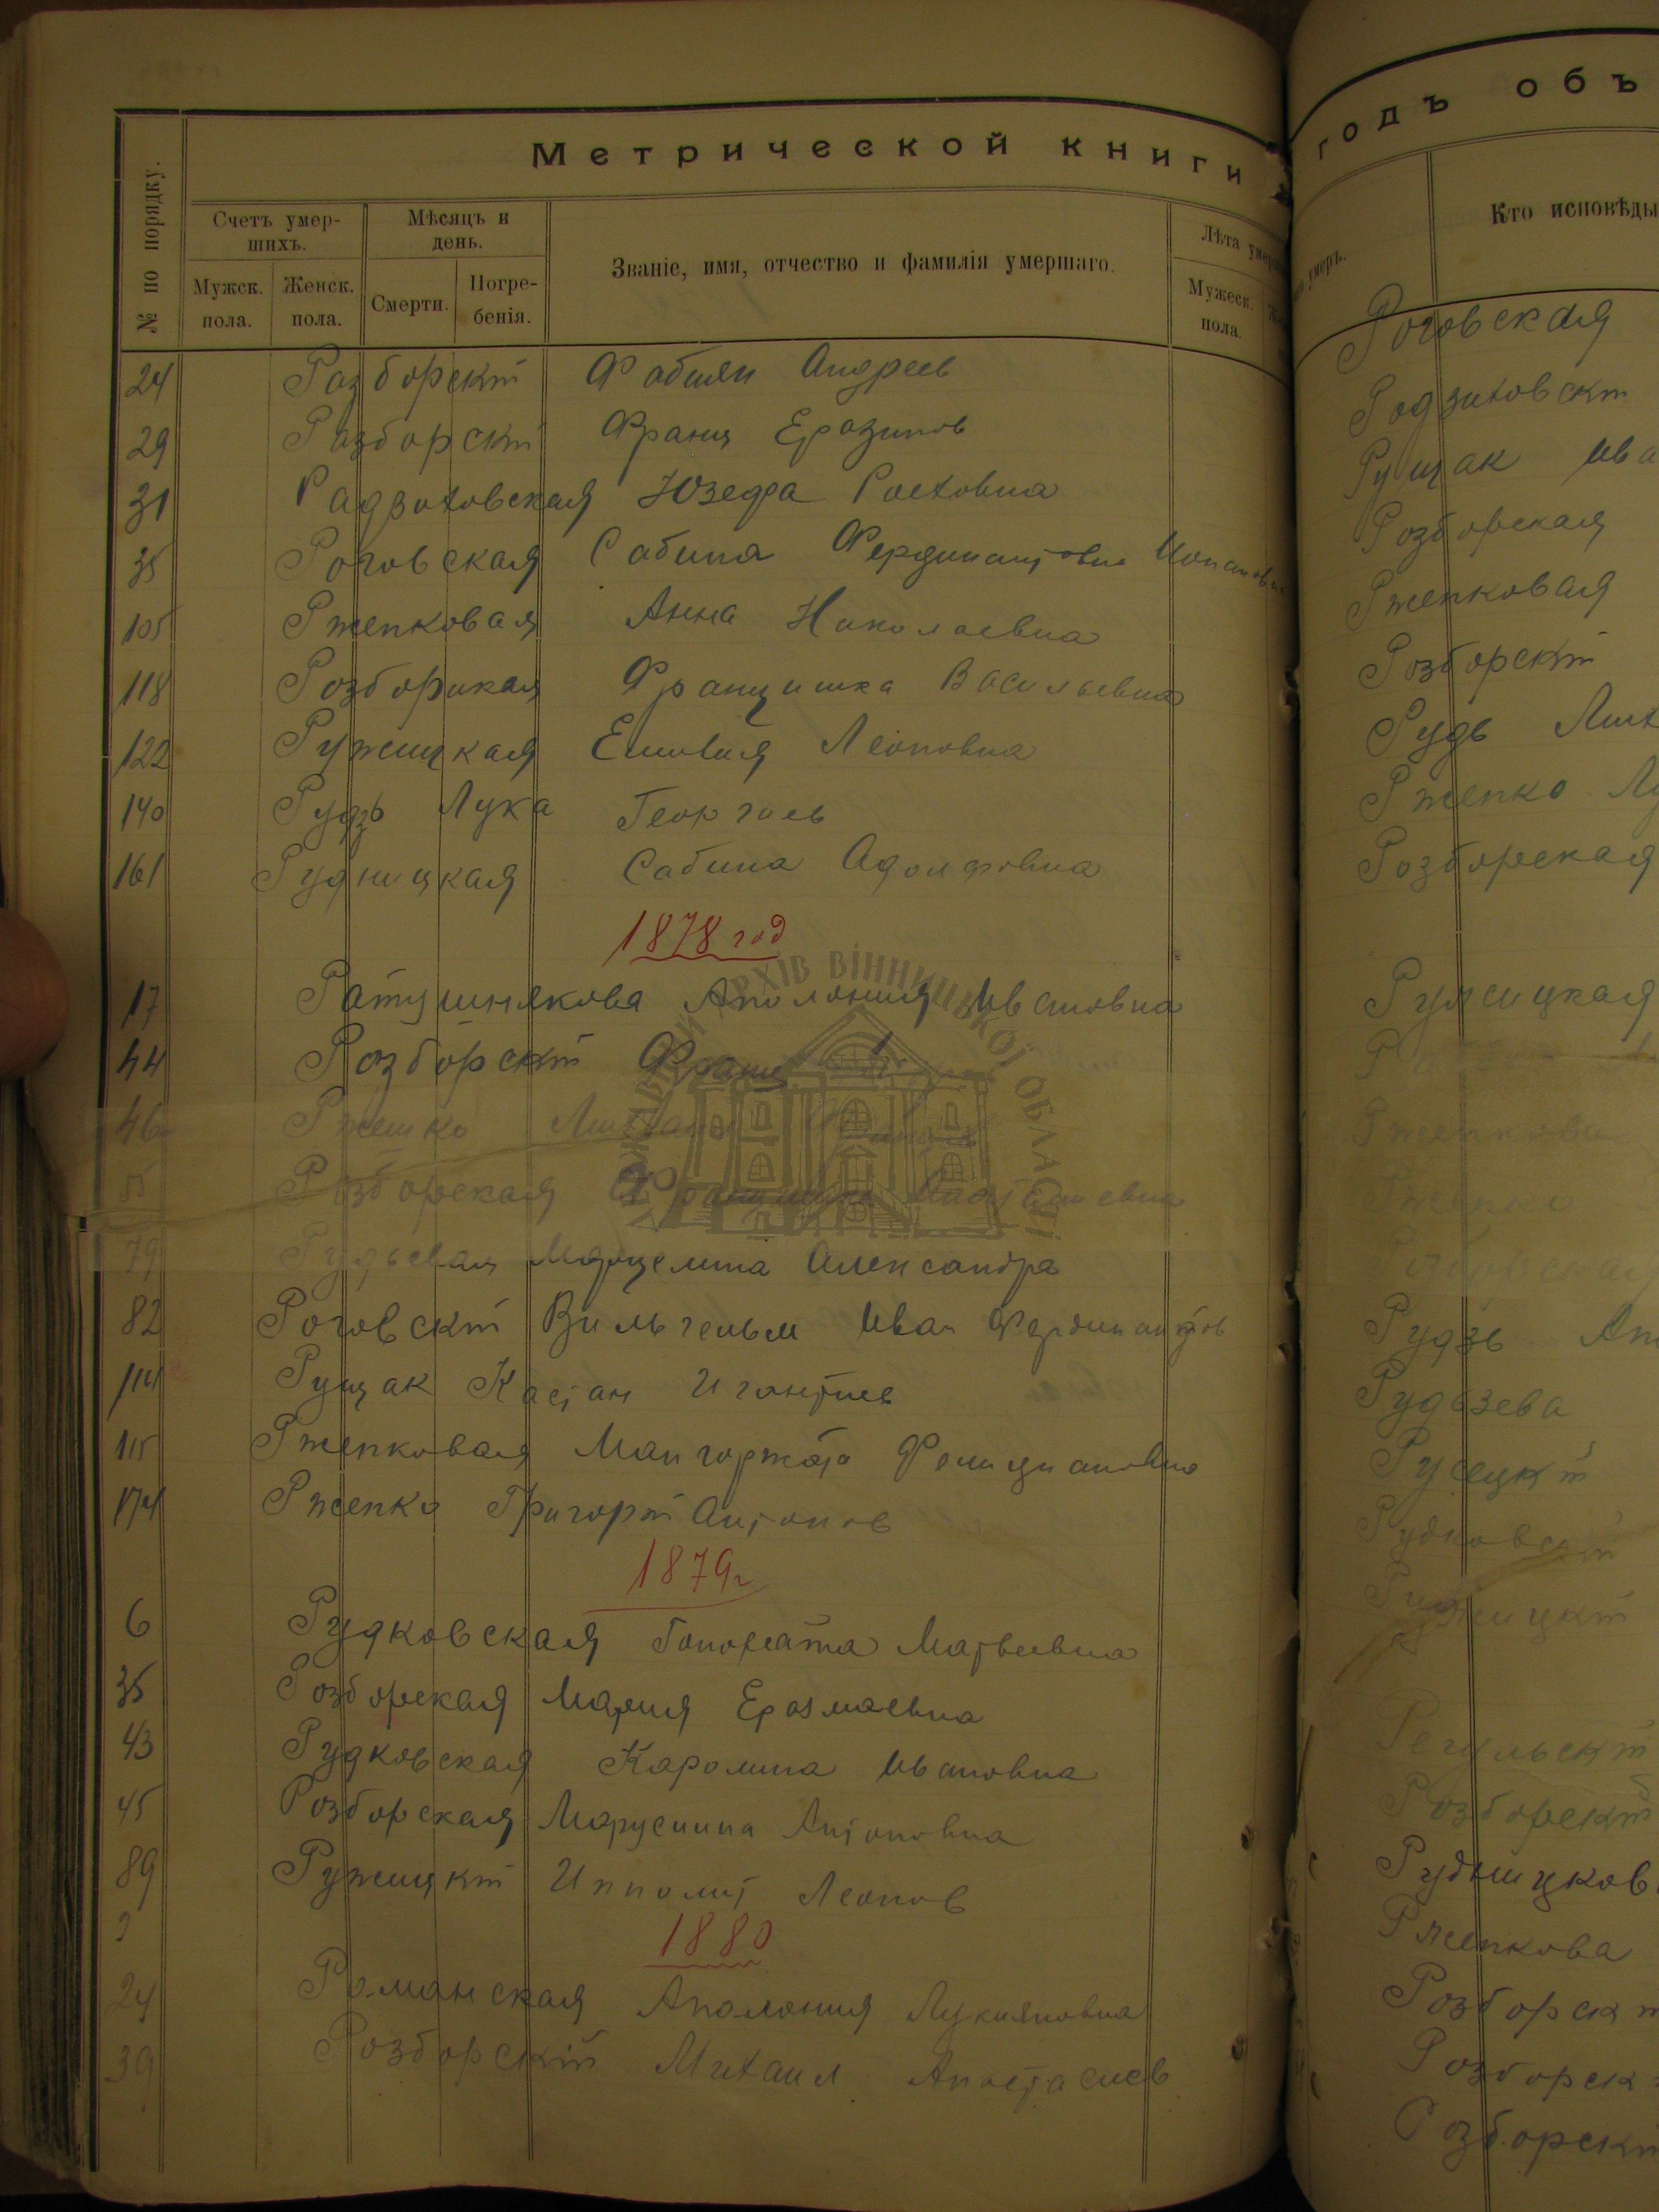 Метрической книги
№ по порядку.
Счетъ умер-
шихъ.
Мѣсяцъ и
день.
Званіе, имя, отчество и фамилія умершаго.
Лѣта
Мужск.
пола.
Женск.
пола.
Смерти.
Погре-
бенія.
Мужеск.
пола.
24 Разборскій Фабиян Андреев
29 Разборскій Франц Еразимов
31 Радзиховская Юзефа
35 Роговская Сабина Фердинандовна
105 Ржепковая Анна Николаевна
118 Францишка Васильевна
122 Ружицкая Леоновна
140 Рудзь Лука Георгиев
161 Рудницкая Сабина Адолфовна
1878 год
17 Ратушнякова Аполония Ивановна
44 Розборскій Франц
46
55 Розборская
79 Марцелина Александра
82 Роговскій Вильгельм Иван Фердинандов
114 Рущак Касіан Игнатиев
115 Ржепковая Малгоржата Фелициановна
174 Ржепко Григорій Антонов
1879г
6 Рудковская Гонората Матвеевна
35 Розборская Мария Еразмаевна
43 Рудковская Каролина Ивановна
45 Розборская Антоновна
89 Ружицкій Ипполит Леонов
1880
24 Романская Аполония Лукияновна
39 Розборскій Михаил Анастасиев
годъ объ
умеръ.
Кто исповѣды
Роговская
Радзиховскій
Рущак Ива
Розборская
Ржепковая
Розборскій
Рудь
Ржепко Лу
Розборская
Ружицкая
Ржепкова
Ржепко
Рудзь Ан
Рудьзева
Русецкій
Рудковскій
Ружицкій
Регульскій
Розборскій
Рудницков
Ржепкова
Розборск
Розборск
Розборскі
АРХІВ ВІННИЦЬКОЇ ОБЛАСТІ